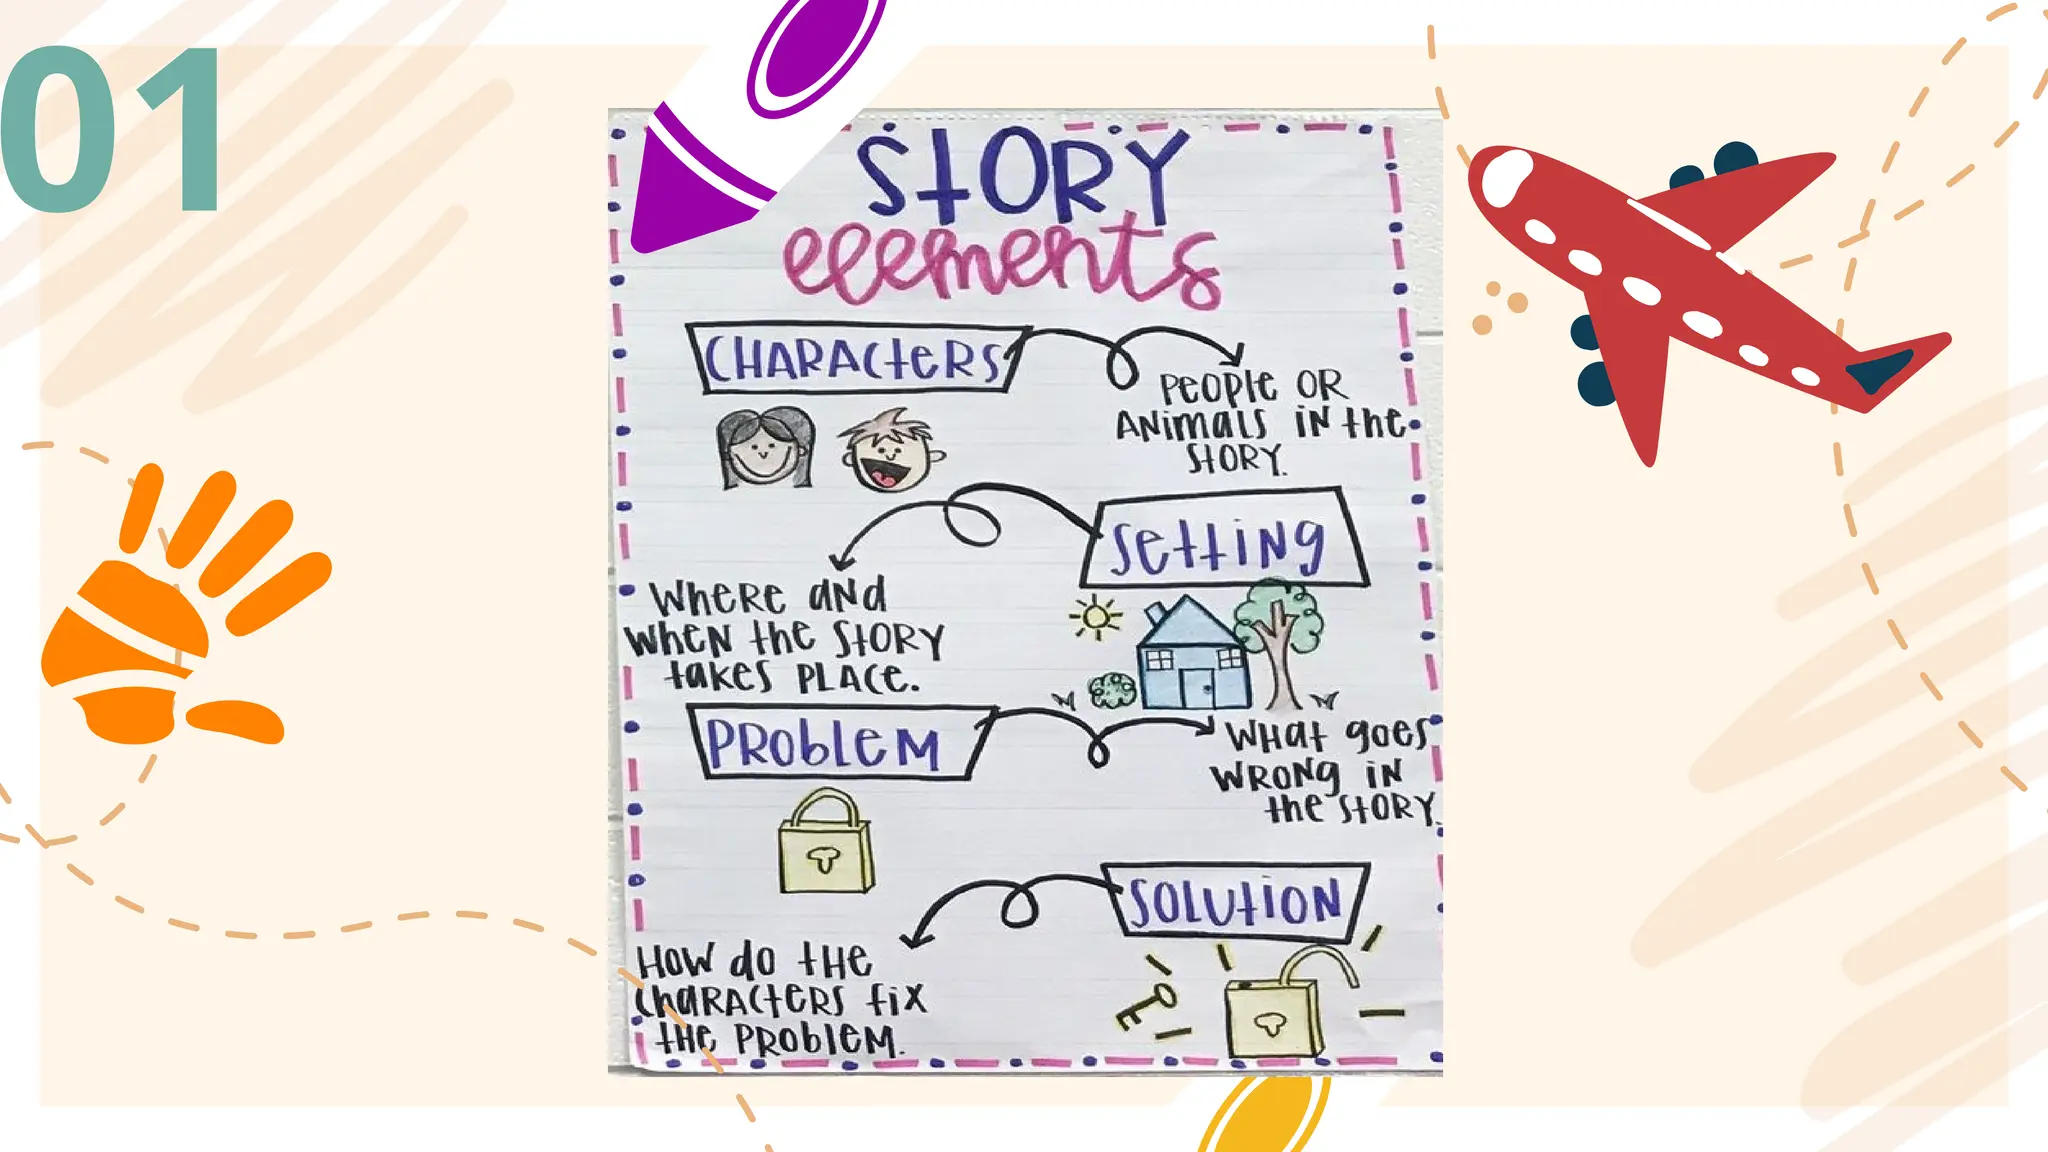 01
STORY
elements
CHARACTERS
PEOPLE OR
ANIMALS IN the
STORY.
Setting
WHERE AND
WHEN the STORY
takes PLACE.
PROBLEM
WHAT goes
WRONG IN
the STORY.
SOLUTION
HOW do tHe
CHARACTERS fix
tHE PROBLEM.